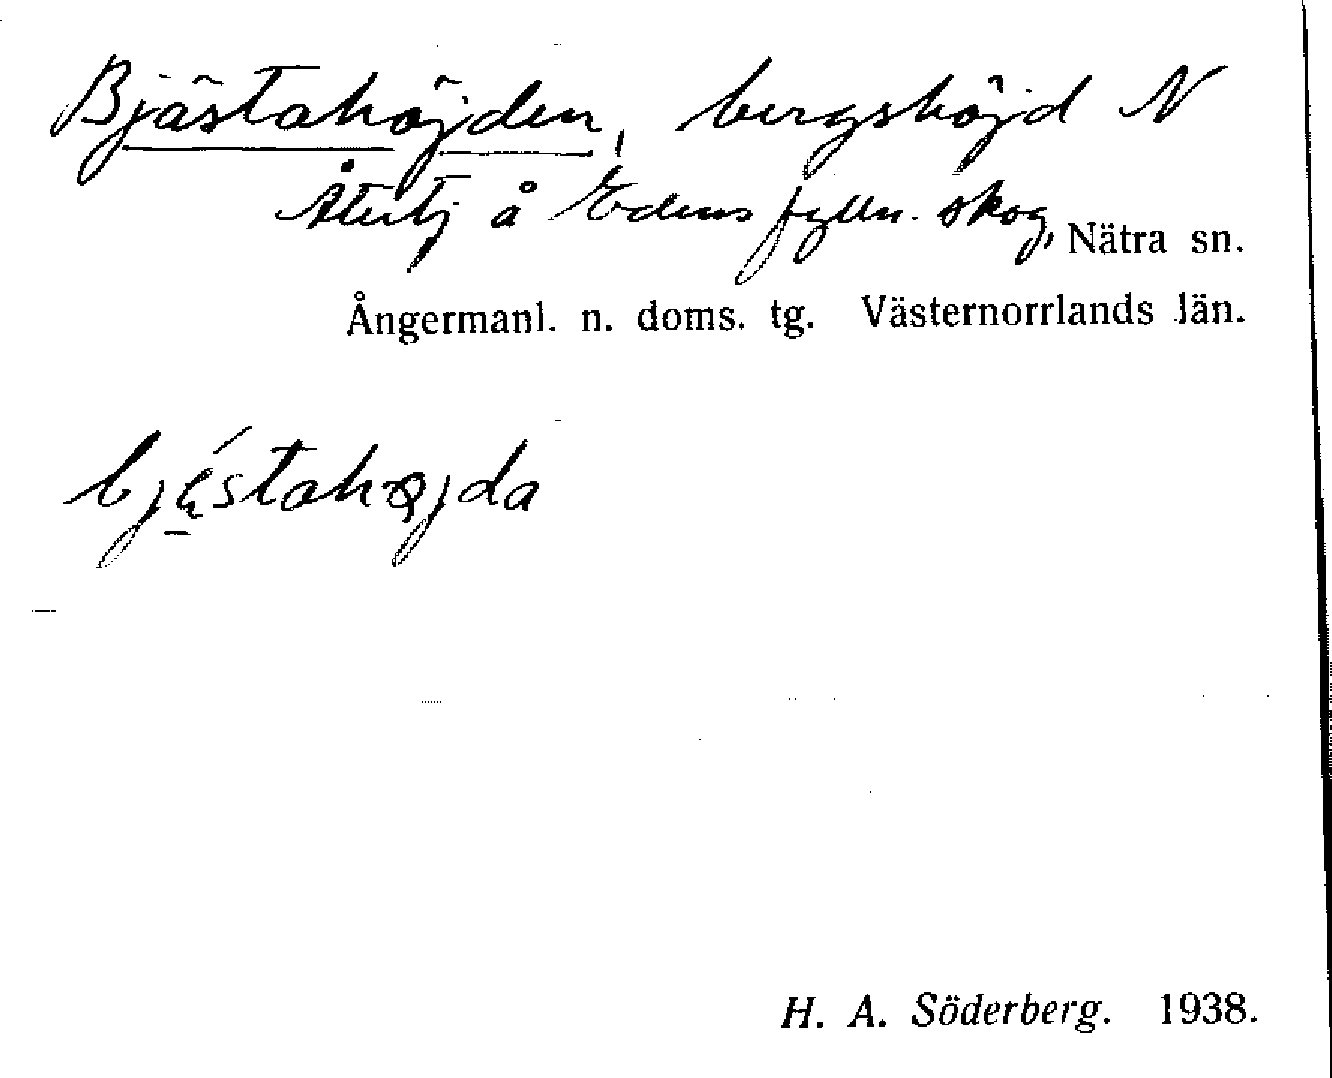 Bjästahöjden, bergshöjd N
å Edens fylln. skog,
Nätra sn.
Ångermanl. n. doms. tg. Västernorrlands län.
H. A. Söderberg. 1938.